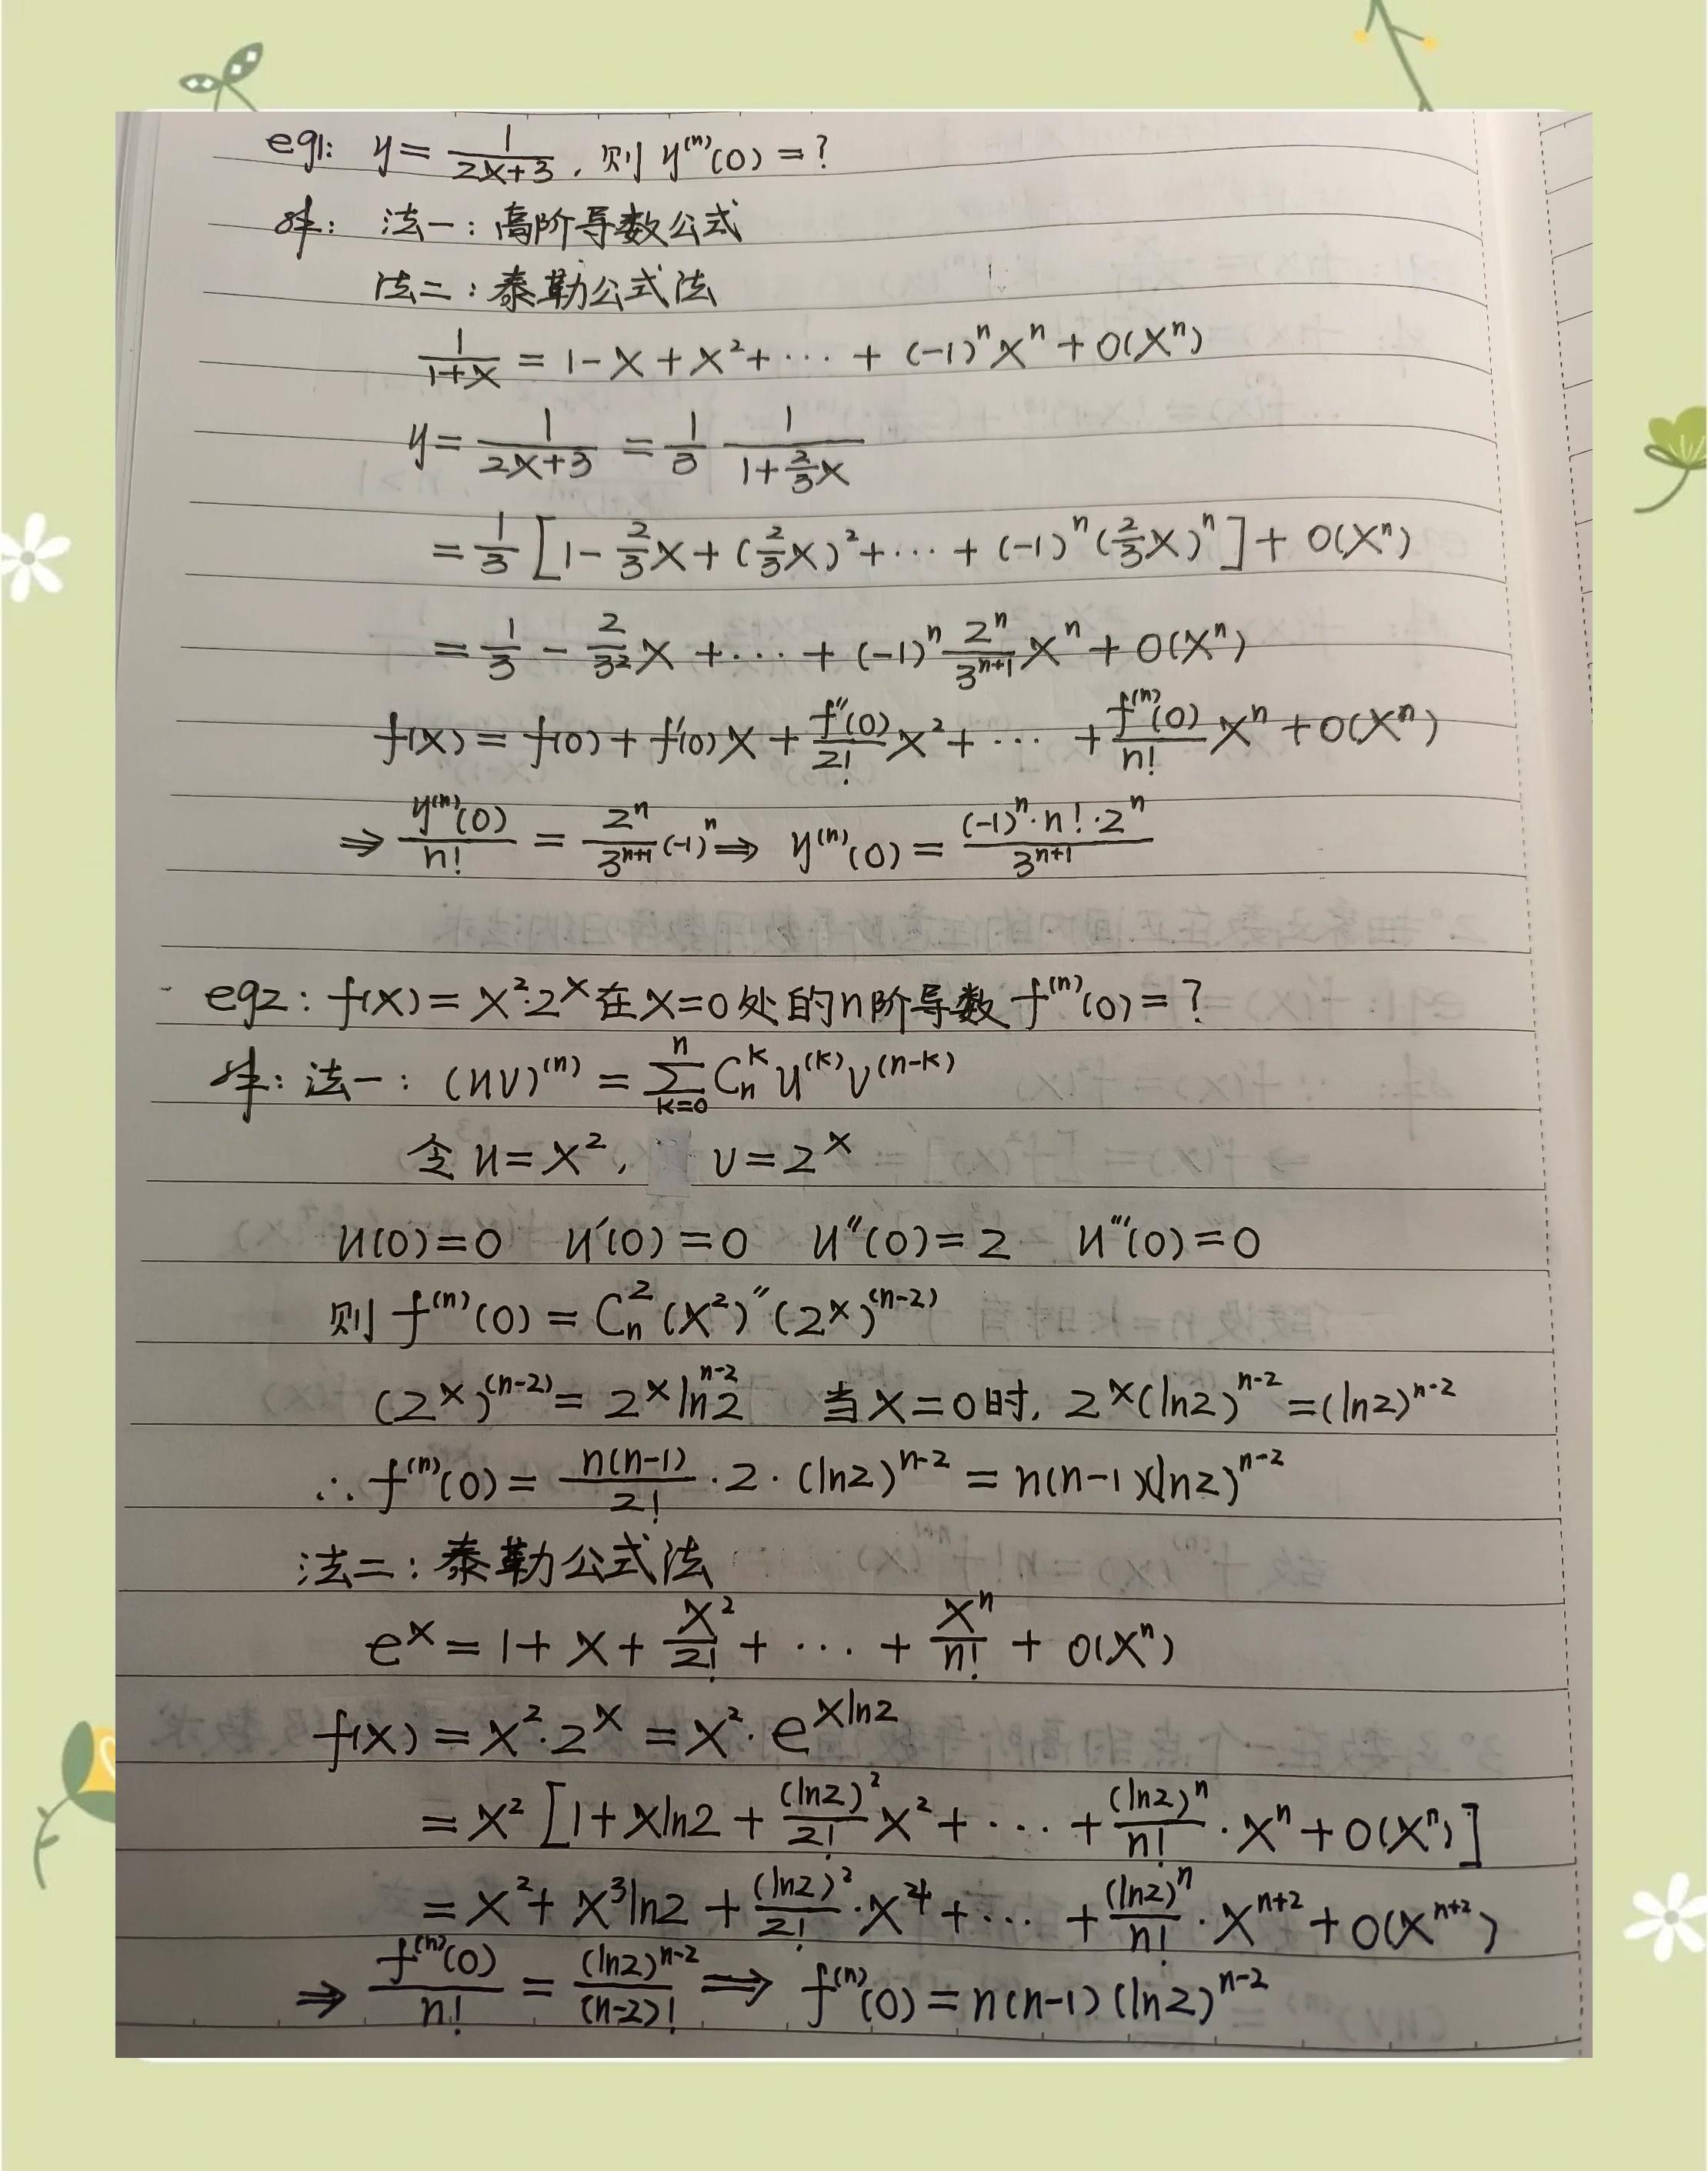 eg1: y = 1/(2x+3), 则 y⁽ⁿ⁾(0) = ?
解: 法一: 高阶导数公式
法二: 泰勒公式法
1/(1+x) = 1 - x + x² + ⋯ + (-1)ⁿxⁿ + o(xⁿ)
y = 1/(2x+3) = 1/3 · 1/(1+(2/3)x)
= 1/3 [1 - (2/3)x + ((2/3)x)² + ⋯ + (-1)ⁿ((2/3)x)ⁿ] + o(xⁿ)
= 1/3 - (2/3²)x + ⋯ + (-1)ⁿ (2ⁿ/3ⁿ⁺¹) xⁿ + o(xⁿ)
f(x) = f(0) + f'(0)x + (f''(0)/2!) x² + ⋯ + (f⁽ⁿ⁾(0)/n!) xⁿ + o(xⁿ)
⇒ y⁽ⁿ⁾(0)/n! = (2ⁿ/3ⁿ⁺¹)(-1)ⁿ ⇒ y⁽ⁿ⁾(0) = ((-1)ⁿ·n!·2ⁿ)/3ⁿ⁺¹
eg2: f(x) = x²·2ˣ 在 x=0 处的n阶导数 f⁽ⁿ⁾(0) = ?
解: 法一: (uv)⁽ⁿ⁾ = Σ_{k=0}^{n} C_n^k u⁽ᵏ⁾ v⁽ⁿ⁻ᵏ⁾
令 u = x², v = 2ˣ
u(0)=0 u'(0)=0 u''(0)=2 u'''(0)=0
则 f⁽ⁿ⁾(0) = C_n^2 (x²)'' (2ˣ)⁽ⁿ⁻²⁾
(2ˣ)⁽ⁿ⁻²⁾ = 2ˣ lnⁿ⁻²2 当x=0时, 2ˣ(ln2)ⁿ⁻² = (ln2)ⁿ⁻²
∴ f⁽ⁿ⁾(0) = (n(n-1)/2!)·2·(ln2)ⁿ⁻² = n(n-1)(ln2)ⁿ⁻²
法二: 泰勒公式法
eˣ = 1 + x + x²/2! + ⋯ + xⁿ/n! + o(xⁿ)
f(x) = x²·2ˣ = x²·e^{xln2}
= x² [1 + xln2 + ((ln2)²/2!) x² + ⋯ + ((ln2)ⁿ/n!)·xⁿ + o(xⁿ)]
= x² + x³ln2 + ((ln2)²/2!)·x⁴ + ⋯ + ((ln2)ⁿ/n!)·xⁿ⁺² + o(xⁿ⁺²)
⇒ f⁽ⁿ⁾(0)/n! = (ln2)ⁿ⁻²/(n-2)! ⇒ f⁽ⁿ⁾(0) = n(n-1)(ln2)ⁿ⁻²